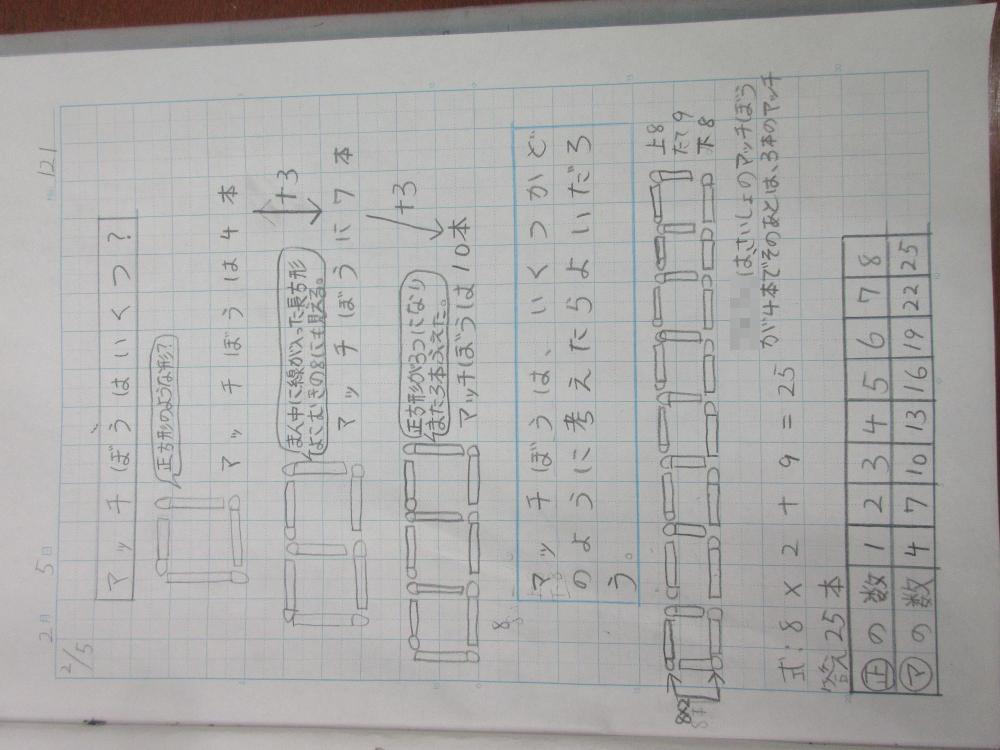 No. 121
2月 5日
2/5
マッチぼうはいくつ?
正方形のような形?
マッチぼうは4本
+3
まん中に線が入った長方形
よこむきの8にも見える。
マッチぼうに7本
+3
正方形が3つになり
また3本ふえた。
マッチぼうは10本
8
マッチぼうは、いくつかど
のように考えたらよいだろ
う。
上8
たて9
下8
8×2
はさいしょのマッチぼう
が4本でそのあとは、3本のマッチ
式:8×2+9=25
答え25本
正の数 1 2 3 4 5 6 7 8
マの数 4 7 10 13 16 19 22 25